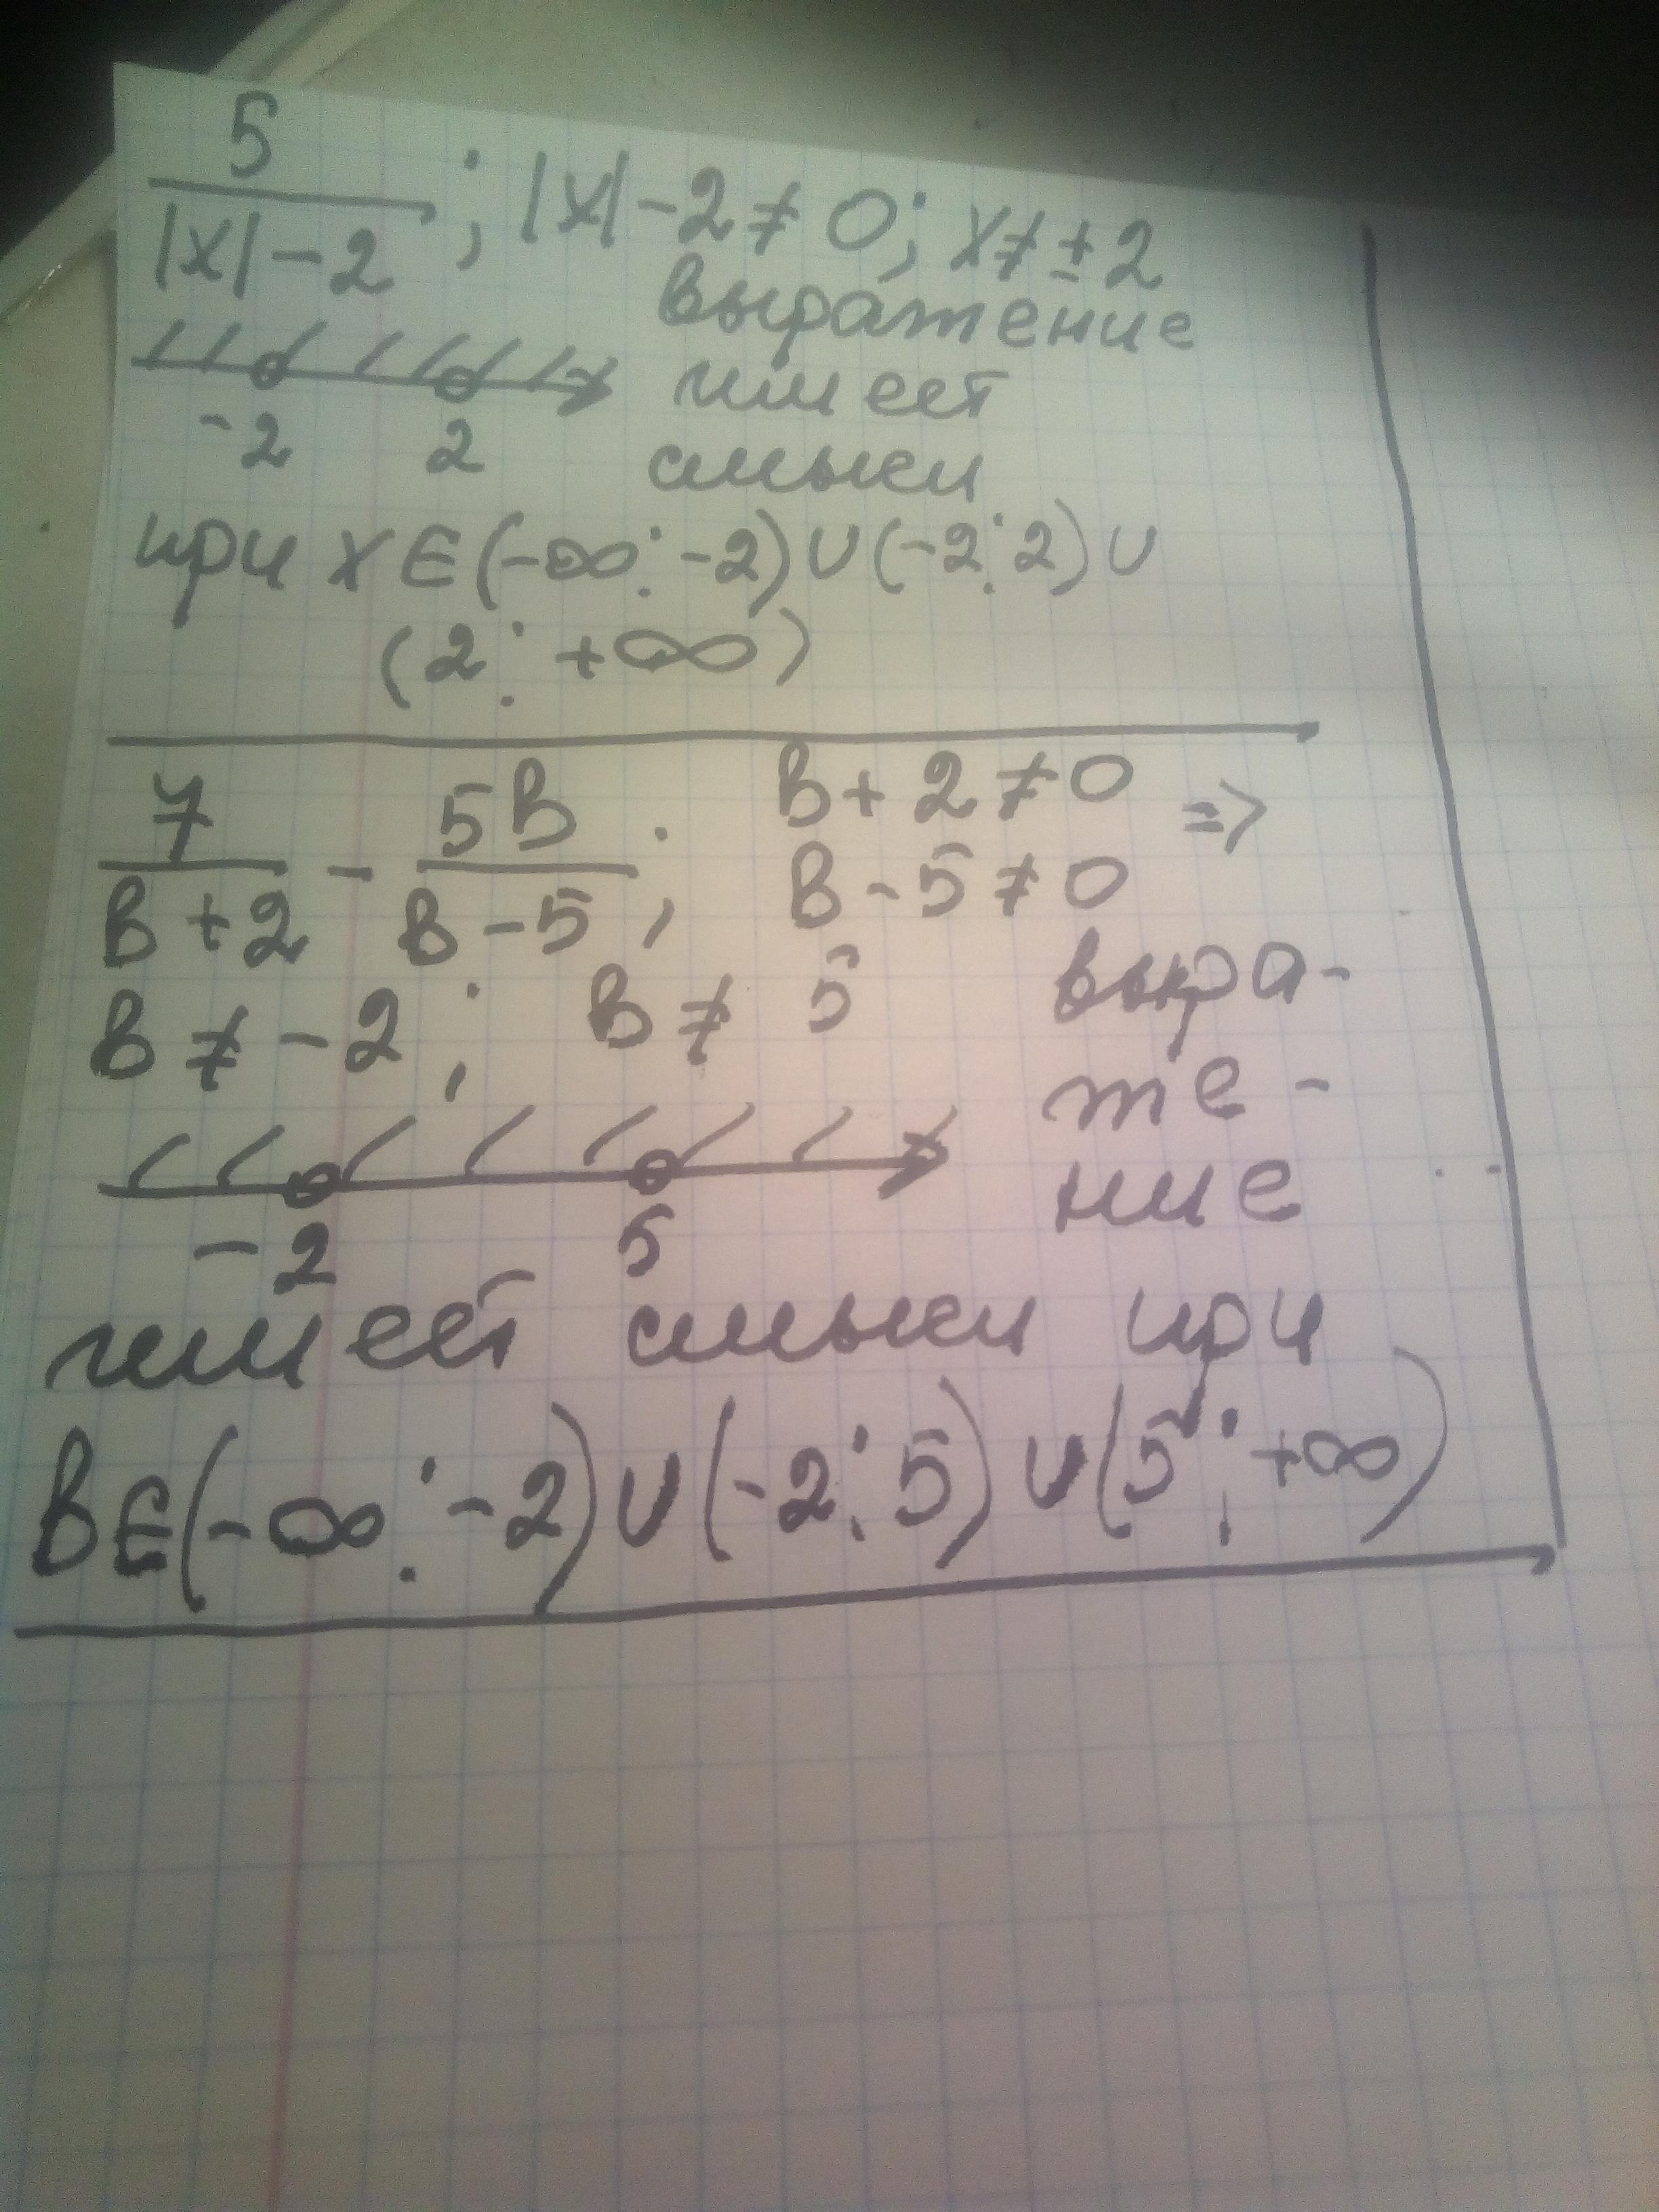 5/(|x|-2); |x|-2≠0; x≠±2
выражение
имеет
-2 2 смысл
при x∈(-∞;-2)∪(-2;2)∪
(2;+∞)
7/(в+2) - 5в/(в-5); в+2≠0 =>
в-5≠0
в≠-2; в≠5 выра-
же-
ние
-2 5
имеет смысл при
в∈(-∞;-2)∪(-2;5)∪(5;+∞)